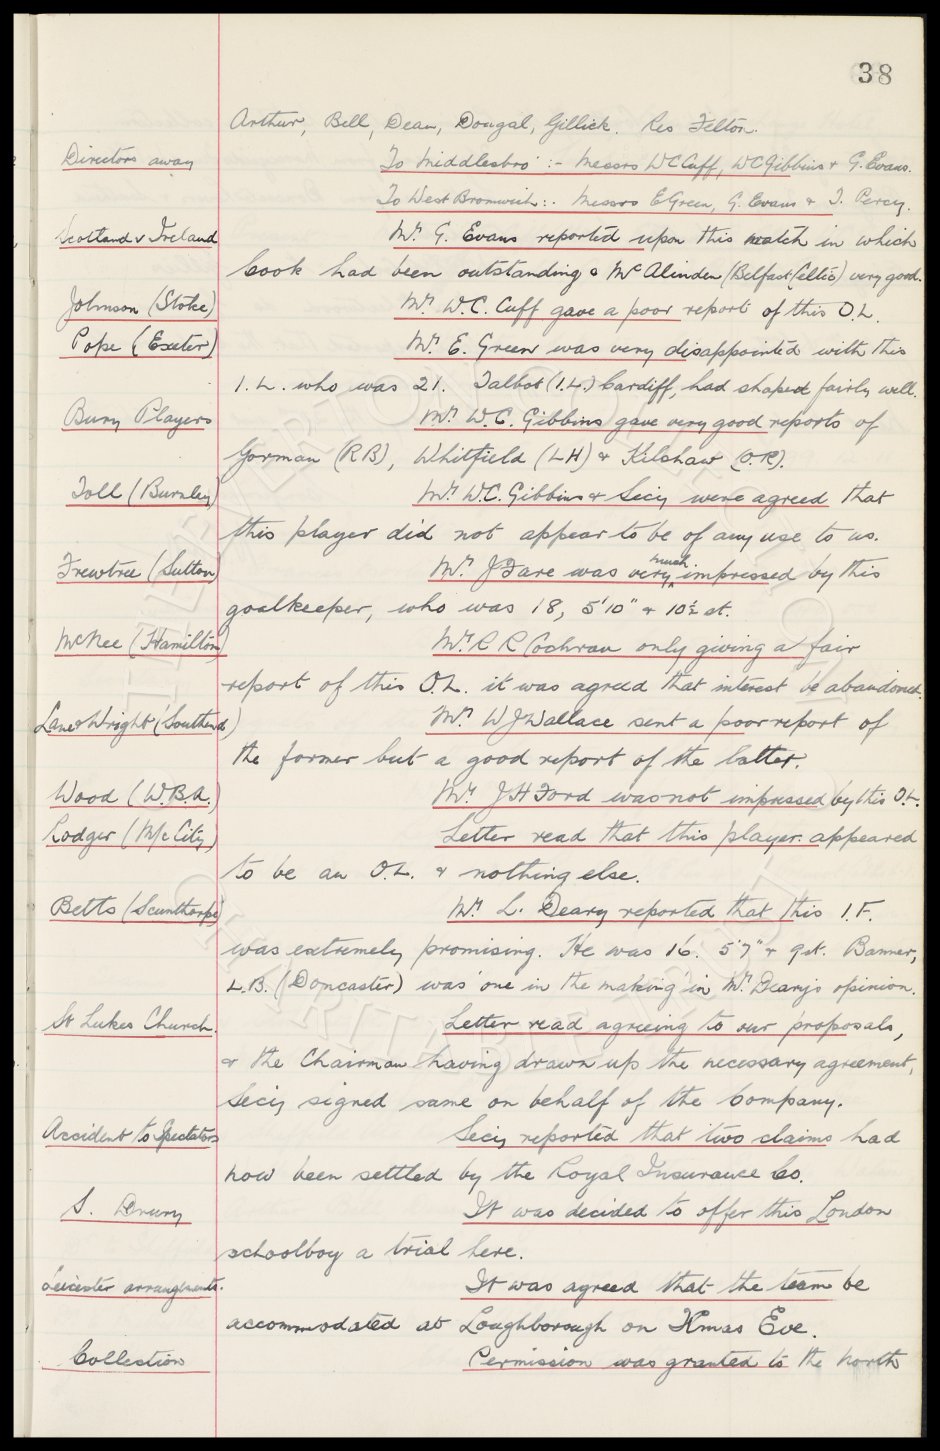 38
Arthur, Bell, Dean, Dougal, Gillick. Res Felton.
Directors away To Middlesbro' :- Messrs WC Cuff, WC Gibbins & G. Evans.
To West Bromwich :- Messrs E Green, G. Evans & T. Percy.
Scotland v Ireland Mr. G. Evans reported upon this match in which
Cook had been outstanding & McAlinden (Belfast Celtic) very good.
Johnson (Stoke) Mr. W.C. Cuff gave a poor report of this O.L.
Pope (Exeter) Mr. E. Green was very disappointed with this
I.L. who was 21. Talbot (I.L.) Cardiff, had shaped fairly well.
Bury Players Mr. W.C. Gibbins gave very good reports of
Gorman (RB), Whitfield (LH) & Kilshaw (O.R).
Toll (Burnley) Mr. W.C. Gibbins & Secy were agreed that
this player did not appear to be of any use to us.
Frewtree (Sutton) Mr. J Fare was very much impressed by this
goalkeeper, who was 18, 5'10" & 10½ st.
McNee (Hamilton) Mr. R R Cochran only giving a fair
report of this O.L. it was agreed that interest be abandoned.
Lane & Wright (Southend) Mr. W J Wallace sent a poor report of
the former but a good report of the latter.
Wood (W.B.A.) Mr. J H Ford was not impressed by this I.L.
Rodger (M/c City) Letter read that this player appeared
to be an O.L. & nothing else.
Betts (Scunthorpe) Mr. L. Deary reported that this I.F.
was extremely promising. He was 16. 5'7" & 9st. Banner,
L.B. (Doncaster) was 'one in the making' in Mr. Deary's opinion.
St Lukes Church. Letter read agreeing to our proposals,
& the Chairman having drawn up the necessary agreement,
Secy signed same on behalf of the Company.
Accident to Spectators Secy reported that two claims had
now been settled by the Royal Insurance Co.
S. Drury It was decided to offer this London
schoolboy a trial here.
Leicester arrangements. It was agreed that the team be
accommodated at Loughborough on Xmas Eve.
Collection Permission was granted to the North